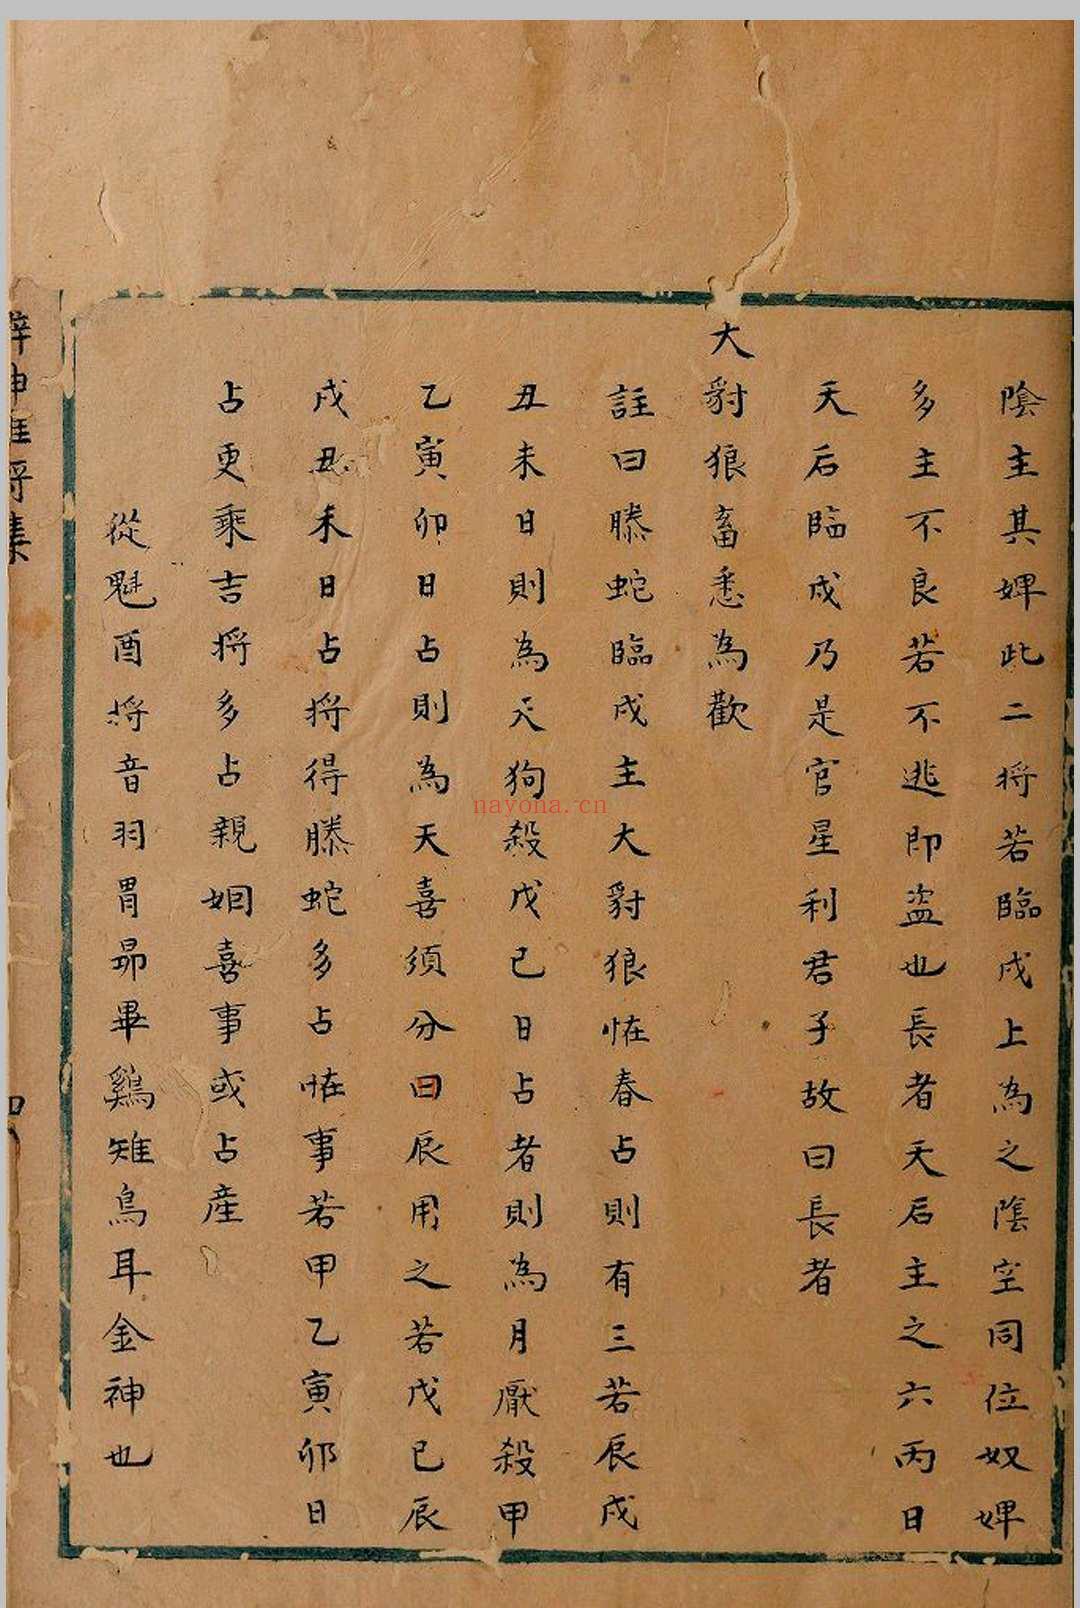 陰主其婢此二将若臨戌上為之陰空同位奴婢
多主不良若不逃即盗也長者天后主之六丙日
天后臨戌乃是官星利君子故曰長者
大豺狼畜悉為歡
註曰螣蛇臨戌主大豺狼恠春占則有三若辰戌
丑未日則為天狗殺戊己日占者則為月厭殺甲
乙寅卯日占則為天喜須分日辰用之若戊己辰
戌丑未日占将得螣蛇多占恠事若甲乙寅卯日
占更乘吉将多占親姻喜事或占産
從魁酉将音羽胃昴畢鷄雉烏耳金神也
nayona.cn